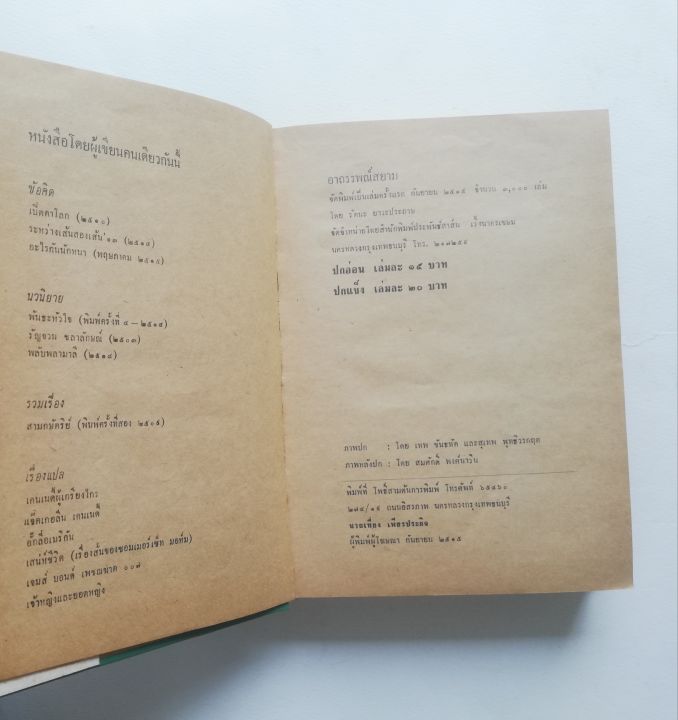 หนังสือโดยผู้เขียนคนเดียวกันนี้
ข้อคิด
เบ็ดคาโลก (๒๕๑๐)
ระหว่างเส้นสองเส้น ๑๓ (๒๕๑๔)
อะไรกันนักหนา (พฤษภาคม ๒๕๑๕)
นวนิยาย
พันธะหัวใจ (พิมพ์ครั้งที่ ๔ — ๒๕๑๔)
รัญจวน ชลาลักษณ์ (๒๕๐๓)
พลับพลามาลี (๒๕๑๔)
รวมเรื่อง
สามกษัตริย์ (พิมพ์ครั้งที่สอง ๒๕๐๕)
เรื่องแปล
เคนเนดี้ผู้เกรียงไกร
แจ็คเกอลีน เคนเนดี้
อั๊กลี่อเมริกัน
เสน่ห์ชีวิต (เรื่องสั้นของซอมเมอร์เซ็ท มอห์ม)
เจมส์ บอนด์ เพชฌฆาต ๐๐๗
เจ้าหญิงและยอดหญิง
อาถรรพณ์สยาม
จัดพิมพ์เป็นเล่มครั้งแรก กันยายน ๒๕๑๕ จำนวน ๓,๐๐๐ เล่ม
โดย รัตนะ ยาวะประภาษ
จัดจำหน่ายโดยสำนักพิมพ์ประพันธ์สาส์น เวิ้งนาครเขษม
นครหลวงกรุงเทพธนบุรี โทร. ๒๑๓๒๕๔
ปกอ่อน เล่มละ ๑๕ บาท
ปกแข็ง เล่มละ ๒๐ บาท
ภาพปก : โดย เทพ ขันธหัด และสุเทพ พุทธิวรกฤต
ภาพหลังปก : โดย สมศักดิ์ พงศ์นาริน
พิมพ์ที่ โพธิ์สามต้นการพิมพ์ โทรศัพท์ ๖๕๔๖๐
๒๗๔/๑๙ ถนนอิสรภาพ นครหลวงกรุงเทพธนบุรี
นายเที่ยง เพียรประกิจ
ผู้พิมพ์ผู้โฆษณา กันยายน ๒๕๑๕